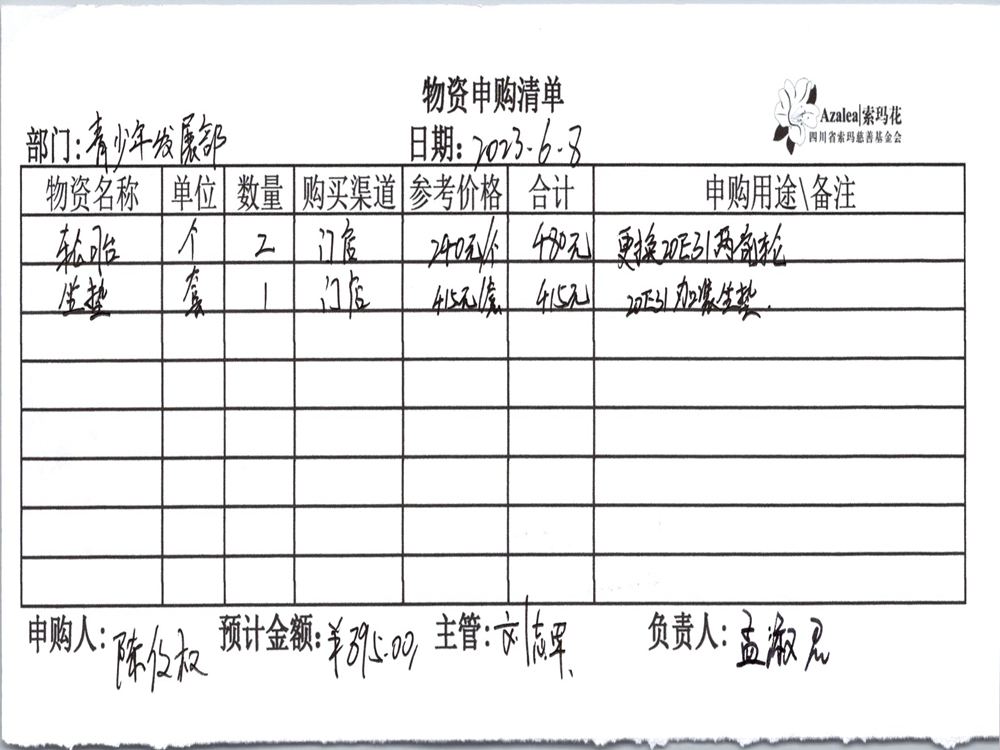 物资申购清单
Azalea|索玛花
四川省索玛慈善基金会
部门：青少年发展部 日期：2023-6-8
物资名称 单位 数量 购买渠道 参考价格 合计 申购用途\备注
轮胎 个 2 门店 240元/个 480元 更换20E31两前轮
坐垫 套 1 门店 415元/套 415元 20E31加装坐垫.
申购人：陈俊权 预计金额：¥895.00 主管：刘志军 负责人：孟淑君